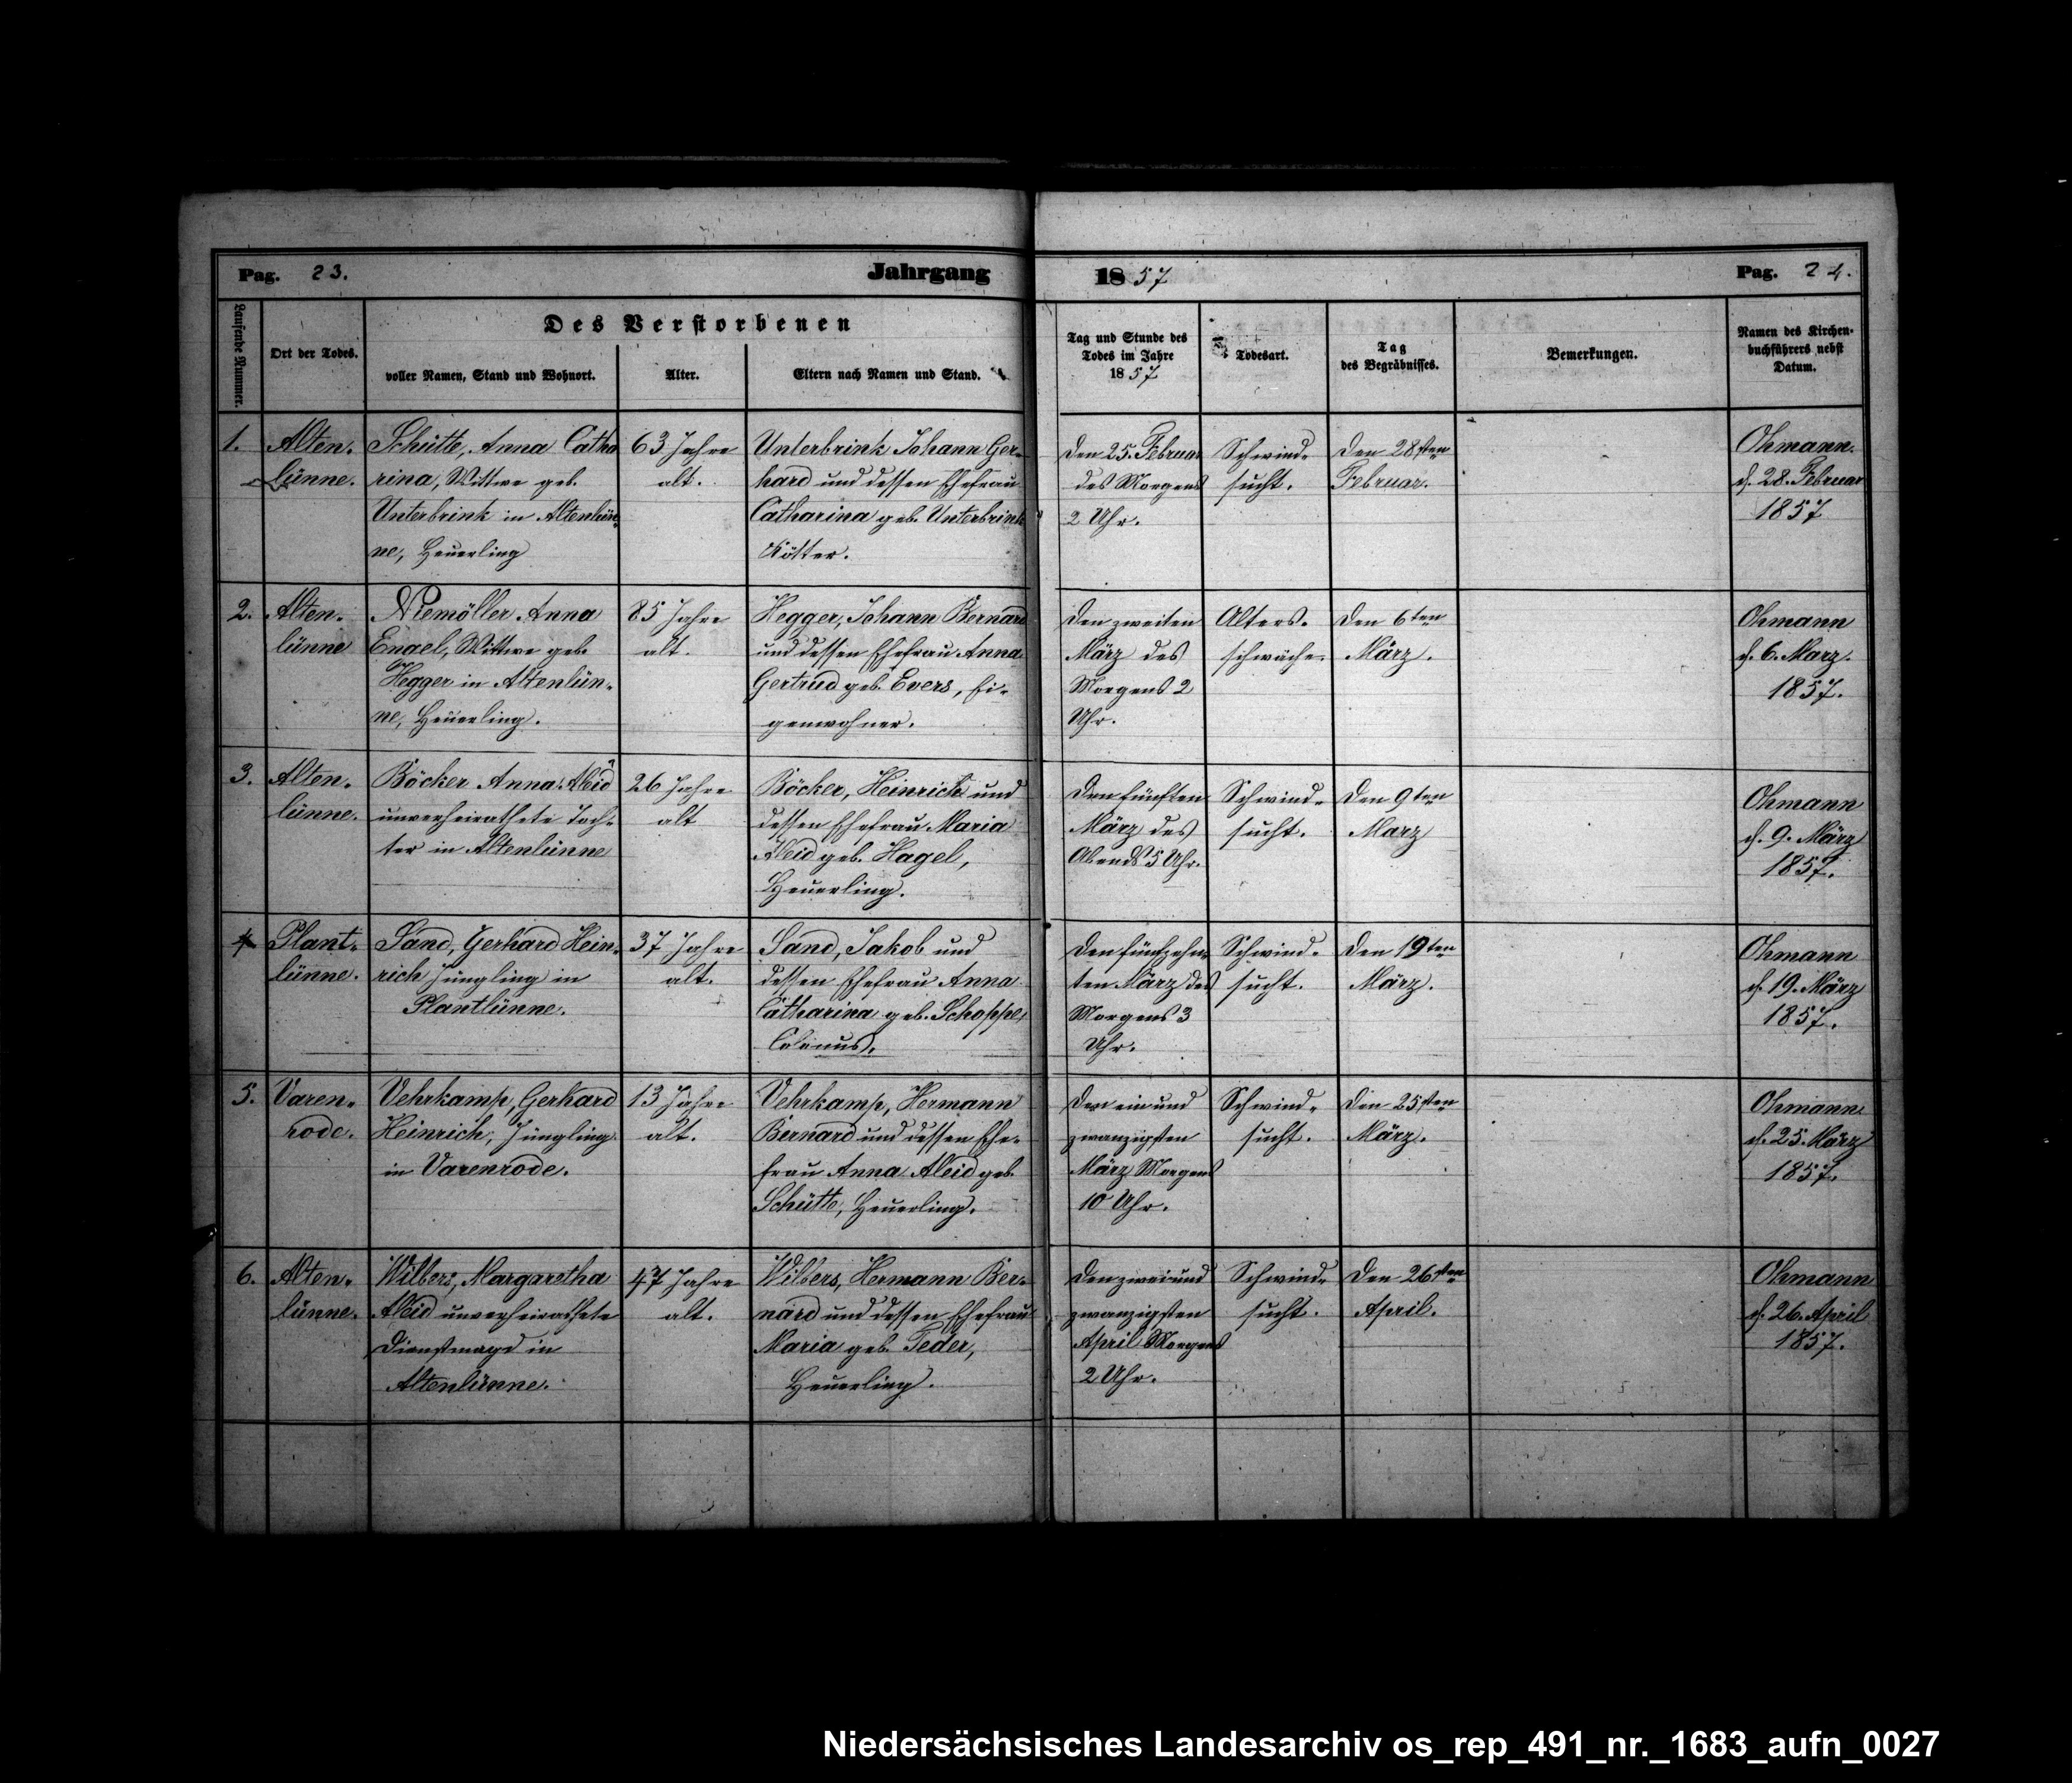 Pag. 23.
Jahrgang
1857
Pag. 24.
Laufende Nummer.
Ort der Todes.
Des Verstorbenen
voller Namen, Stand und Wohnort.
Alter.
Eltern nach Namen und Stand.
Tag und Stunde des
Todes im Jahre
1857
Todesart.
Tag
des Begräbnisses.
Bemerkungen.
Namen des Kirchen-
buchführers nebst
Datum.
1.
Alten-
lünne.
Schütte, Anna Catha
rina, Wittwe geb.
Unterbrink in Altenlün-
ne, Heuerling
63 Jahre
alt.
Unterbrink Johann Ger-
hard und dessen Ehefrau
Catharina geb. Unterbrink
Kötter.
den 25. Februar
des Morgens
2 Uhr.
Schwind-
sucht.
den 28sten
Februar.
Ohmann.
d. 28. Februar
1857
2.
Alten-
lünne
Niemöller Anna
Engel, Wittwe geb.
Hegger in Altenlün-
ne, Heuerling.
85 Jahre
alt.
Hegger, Johann Bernard
und dessen Ehefrau Anna
Gertrud geb. Evers, Ei-
genwohner.
den zweiten
März des
Morgens 2
Uhr.
Alters-
schwäche.
den 6ten
März.
Ohmann
d. 6. März.
1857.
3.
Alten-
lünne.
Böcker Anna Aleid
unverheirathete Toch-
ter in Altenlünne
26 Jahre
alt
Böcker, Heinrich und
dessen Ehefrau Maria
Aleid geb. Hagel,
Heuerling.
den fünften
März des
Abends 5 Uhr.
Schwind-
sucht.
den 9ten
März
Ohmann
d. 9. März
1857.
4
Plant-
lünne.
Sand, Gerhard Hein-
rich Jüngling in
Plantlünne.
37 Jahre
alt.
Sand, Jakob und
dessen Ehefrau Anna
Catharina geb. Schoppe,
Colonus.
den fünfzehn-
ten März des
Morgens 3
Uhr.
Schwind-
sucht.
den 19ten
März.
Ohmann
d. 19. März
1857.
5.
Varen-
rode.
Vehrkamp, Gerhard
Heinrich, Jüngling
in Varenrode.
13 Jahre
alt.
Vehrkamp, Hermann
Bernard und dessen Ehe-
frau Anna Aleid geb.
Schütte, Heuerling.
den ein und
zwanzigsten
März Morgens
10 Uhr.
Schwind-
sucht.
den 25sten
März.
Ohmann
d. 25. März
1857.
6.
Alten-
lünne.
Wilbers, Margaretha
Aleid unverheirathete
Dienstmagd in
Altenlünne.
47 Jahre
alt.
Wilbers, Hermann Ber-
nard und dessen Ehefrau
Maria geb. Feder,
Heuerling.
den zwei und
zwanzigsten
April Morgens
2 Uhr.
Schwind-
sucht.
den 26sten
April.
Ohmann
d. 26. April
1857.
Niedersächsisches Landesarchiv os_rep_491_nr._1683_aufn_0027